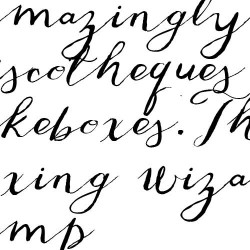 mazingly
scotheques
keboxes. Th
xing wiza
mp